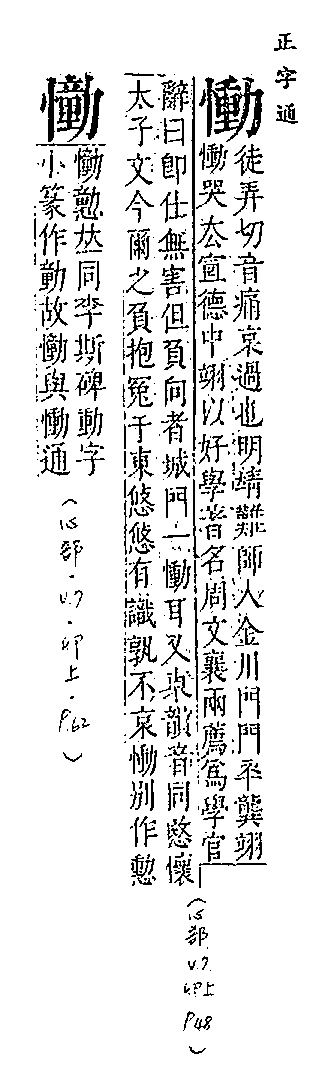 正字通
慟
徒弄切音痛哀過也明靖難師入金川門門卒龔翊
慟哭去宣德中翊以好學著名周文襄兩薦爲學官
辭曰卽仕無害但負向者城門一慟耳又東韻音同愍懷
太子文今爾之負抱冤于東悠悠有識孰不哀慟別作懃
(心部.V.7.卯上 P48)
㦂
慟懃𠀤同李斯碑動字
小篆作勭故㦂與慟通
(心部.V.7.卯上.P.62)